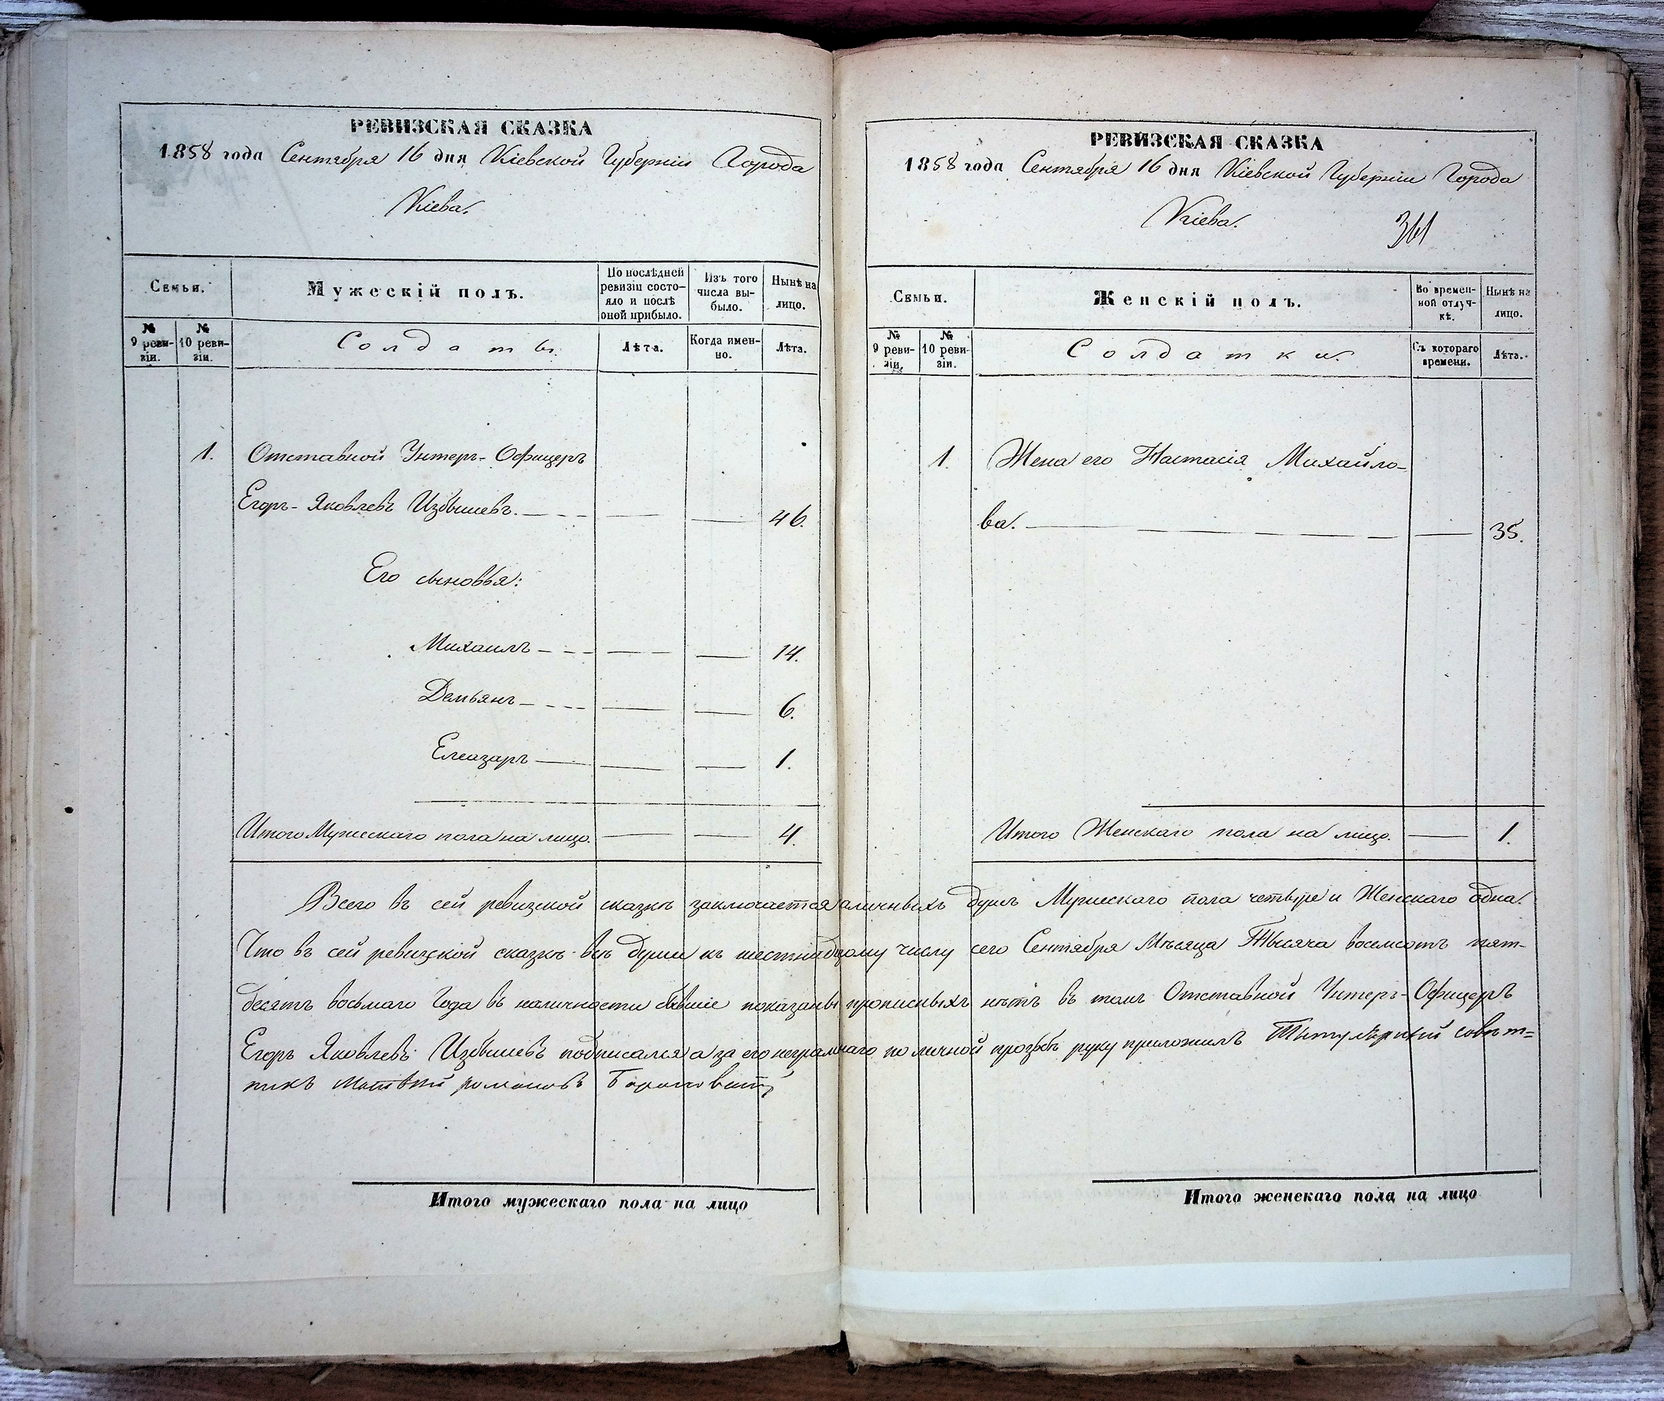 РЕВИЗСКАЯ СКАЗКА
1858 года Сентября 16 дня Кіевской Губерніи Города
Кіева.
Семьи.
Мужескій полъ.
По послѣдней ревизіи состояло и послѣ оной прибыло.
Изъ того числа выбыло.
Нынѣ на лицо.
№ 9 ревизіи.
№ 10 ревизіи.
Солдаты.
Лѣта.
Когда именно.
Лѣта.
1. Отставной Унтеръ-Офицеръ
Егоръ-Яковлевъ Избышевъ. 46.
Его сыновья:
Михаилъ 14.
Демьянъ 6.
Елеазаръ 1.
Итого Мужескаго пола на лицо. 4.
РЕВИЗСКАЯ СКАЗКА
1858 года Сентября 16 дня Кіевской Губерніи Города
Кіева.
361
Семьи.
Женскій полъ.
Во временной отлучкѣ.
Нынѣ на лицо.
№ 9 ревизіи.
№ 10 ревизіи.
Солдатки.
Съ котораго времени.
Лѣта.
1. Жена его Настасія Михайло-
ва. 35.
Итого Женскаго пола на лицо. 1.
Всего въ сей ревизской сказкѣ заключается наличныхъ душъ Мужескаго пола четыре и Женскаго одна.
Что въ сей ревизской сказкѣ всѣ души къ шестнадцатому числу сего Сентября Мѣсяца Тысяча восемсотъ пят-
десятъ восьмаго Года въ наличности бывшіе показаны прописныхъ нѣтъ въ томъ Отставной Унтеръ-Офицеръ
Егоръ Яковлевъ Избышевъ подписался а за его неграмотнаго по личной прозьбѣ руку приложилъ Титулярный совѣт=
никъ Матвѣй романовъ
Итого мужескаго пола на лицо
Итого женскаго пола на лицо